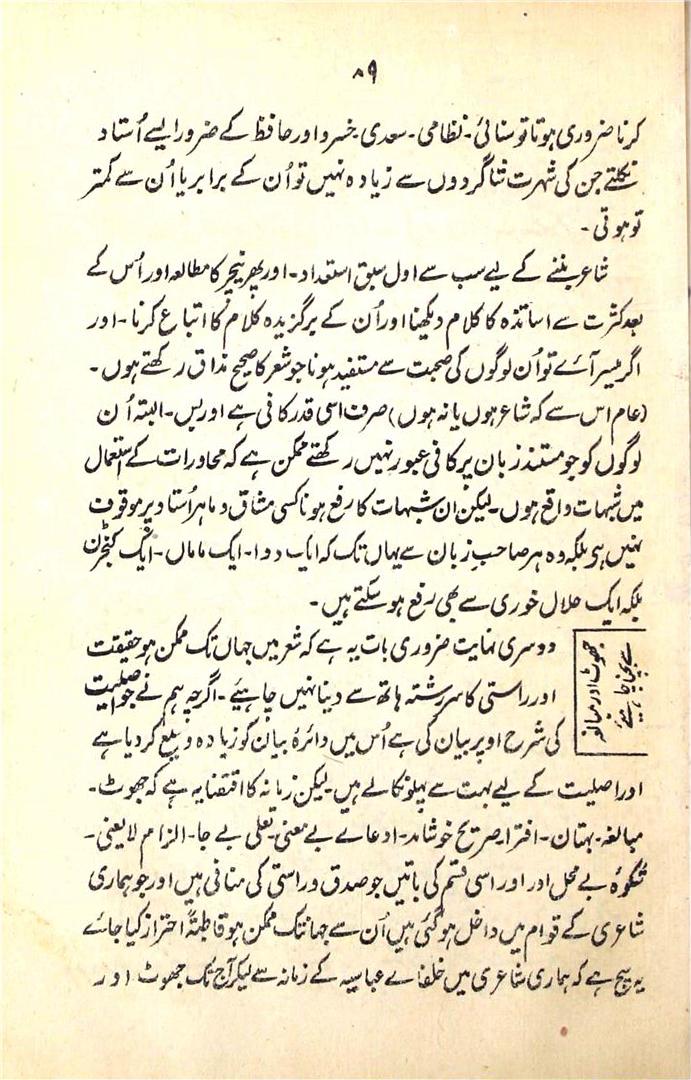 ۸۹
کرنا ضروری ہوتا تو سنائی۔ نظامی۔ سعدی۔ خسرو اور حافظ کے ضرور ایسے اُستاد
نکلتے جن کی شہرت شاگردوں سے زیادہ نہیں تو اُن کے برابر یا اُن سے کمتر
تو ہوتی۔
شاعر بننے کے لیے سب سے اول سبق استعداد۔ اور پھر نیچر کا مطالعہ اور اُس کے
بعد کثرت سے اساتذہ کا کلام دیکھنا اور اُن کے برگزیدہ کلام کا اتباع کرنا۔ اور
اگر میسر آئے تو اُن لوگوں کی صحبت سے مستفید ہونا جو شعر کا صحیح مذاق رکھتے ہوں۔
(عام اس سے کہ شاعر ہوں یا نہ ہوں) صرف اسی قدر کافی ہے اور بس۔ البتہ اُن
لوگوں کو جو مستند زبان پر کافی عبور نہیں رکھتے ممکن ہے کہ محاورات کے استعمال
میں شبہات واقع ہوں۔ لیکن ان شبہات کا رفع ہونا کسی مشاق و ماہر اُستاد پر موقوف
نہیں ہی بلکہ وہ ہر صاحبِ زبان سے یہاں تک کہ ایک ددا۔ ایک ماماں۔ ایک کنجڑن
بلکہ ایک حلال خوری سے بھی رفع ہو سکتے ہیں۔
جھوٹ اور مبالغہ
سے بچنا چاہیئے
دوسری نہایت ضروری بات یہ ہے کہ شعر میں جہاں تک ممکن ہو حقیقت
اور راستی کا سررشتہ ہاتھ سے دینا نہیں چاہیئے۔ اگرچہ ہم نے جو اصلیت
کی شرح اوپر بیان کی ہے اُس میں دائرۂ بیان کو زیادہ وسیع کر دیا ہے
اور اصلیت کے لیے بہت سے پہلو نکالے ہیں۔ لیکن زمانہ کا اقتضا یہ ہے کہ جھوٹ۔
مبالغہ۔ بہتان۔ افترا۔ صریح خوشامد۔ ادعاے بے معنی۔ تعلی بے جا۔ الزام لایعنی۔
شکوۂ بے محل اور اور اسی قسم کی باتیں جو صدق و راستی کی منافی ہیں اور جو ہماری
شاعری کے قوام میں داخل ہو گئی ہیں اُن سے جہانتک ممکن ہو قاطبتہً احتراز کیا جائے
یہ سچ ہے کہ ہماری شاعری میں خلفاے عباسیہ کے زمانہ سے لیکر آج تک جھوٹ اور